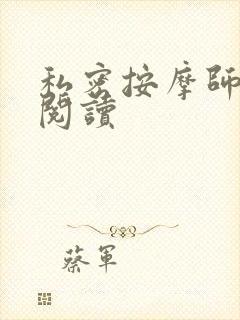 私密按摩師
閱讀
蔡軍